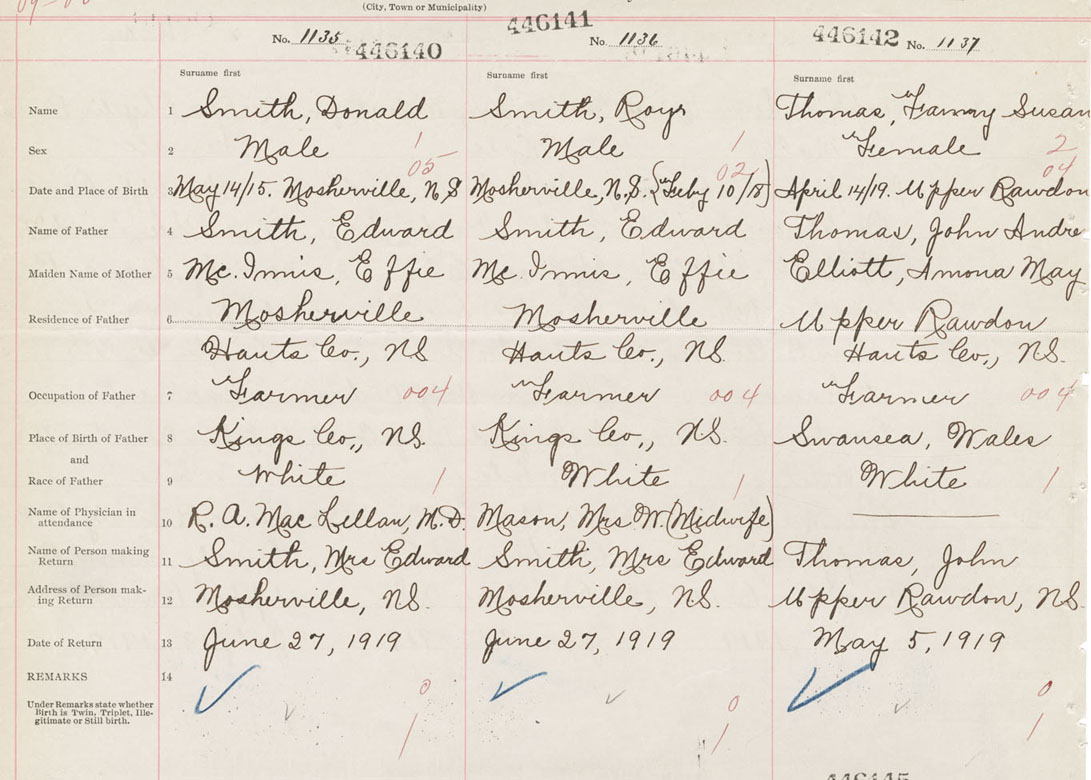 (City, Town or Municipality)
No. 1135 446140
446141 No. 1136
446142 No. 1137
Surname first Surname first Surname first
Name 1 Smith, Donald Smith, Roy Thomas, Fanny Susan
Sex 2 Male 1 Male 1 Female 2
05 02 04
Date and Place of Birth 3 May 14/15. Mosherville, N.S Mosherville, N.S. (Feby 10/18) April 14/19. Upper Rawdon
Name of Father 4 Smith, Edward Smith, Edward Thomas, John Andre
Maiden Name of Mother 5 Mc. Innis, Effie Mc. Innis, Effie Elliott, Amona May
Residence of Father 6 Mosherville Mosherville Upper Rawdon
Hants Co., NS. Hants Co., NS. Hants Co., NS.
Occupation of Father 7 Farmer 004 Farmer 004 Farmer 004
Place of Birth of Father 8 Kings Co., NS. Kings Co., NS. Swansea, Wales
and
Race of Father 9 White 1 White 1 White 1
Name of Physician in
attendance 10 R. A. Mac Lellan, M.D. Mason, Mrs W. (Midwife)
Name of Person making
Return 11 Smith, Mrs Edward Smith, Mrs Edward Thomas, John
Address of Person mak-
ing Return 12 Mosherville, NS. Mosherville, NS. Upper Rawdon, NS.
Date of Return 13 June 27, 1919 June 27, 1919 May 5, 1919
REMARKS 14
Under Remarks state whether
Birth is Twin, Triplet, Ille-
gitimate or Still birth.
0 0 0
1 1 1